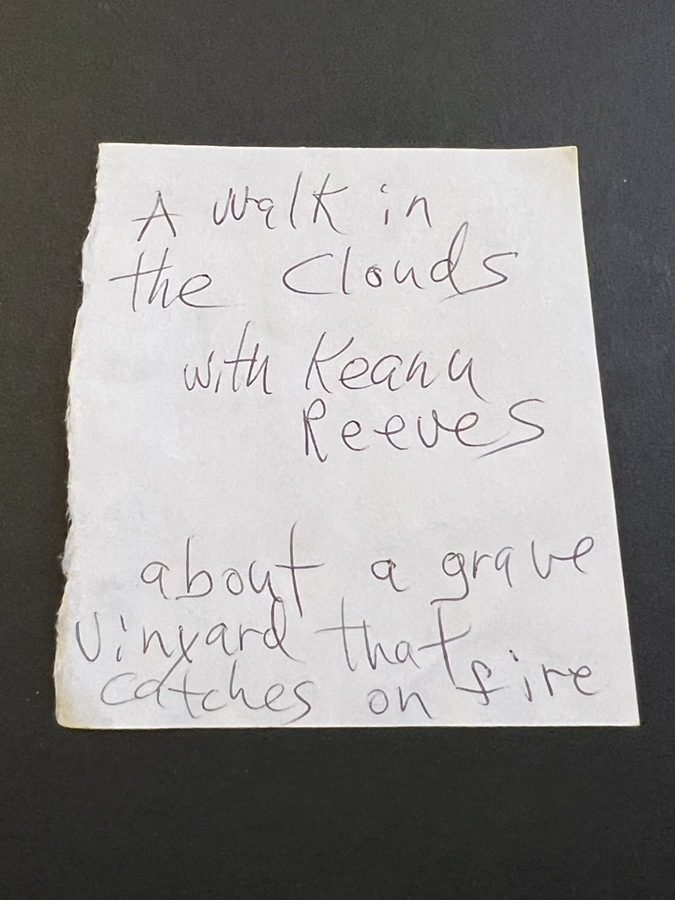 A walk in
the Clouds
with Keanu
Reeves
about a grave
vinyard that
catches on fire